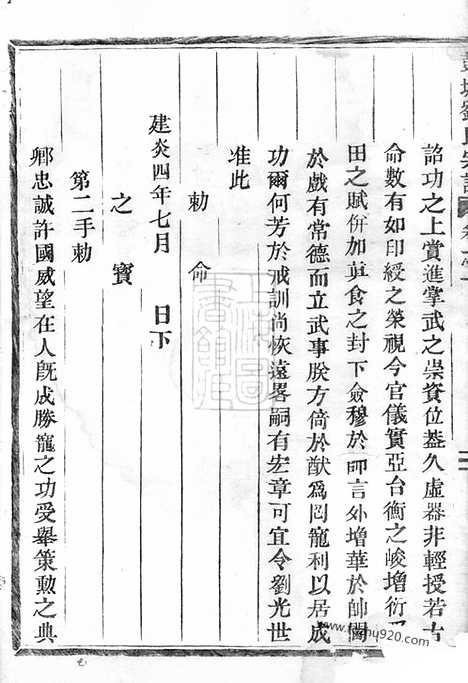 彭城劉氏宗譜 卷之一
詔功之上賞進掌武之崇資位益久虛器非輕授若古
命數有如印綬之榮視今官儀實亞台衡之峻增衍
田之賦併加真食之封下僉穆於師言外增華於帥閫
於戲有常德而立武事朕方倚於猷為罔寵利以居成
功爾何芳於戒訓尚恢遠畧嗣有宏章可宜令劉光世
准此
勅 命
建炎四年七月 日下
之 寶
第二手勅
卿忠誠許國威望在人旣成勝寵之功受舉策勲之典
上海圖書館藏
920.com